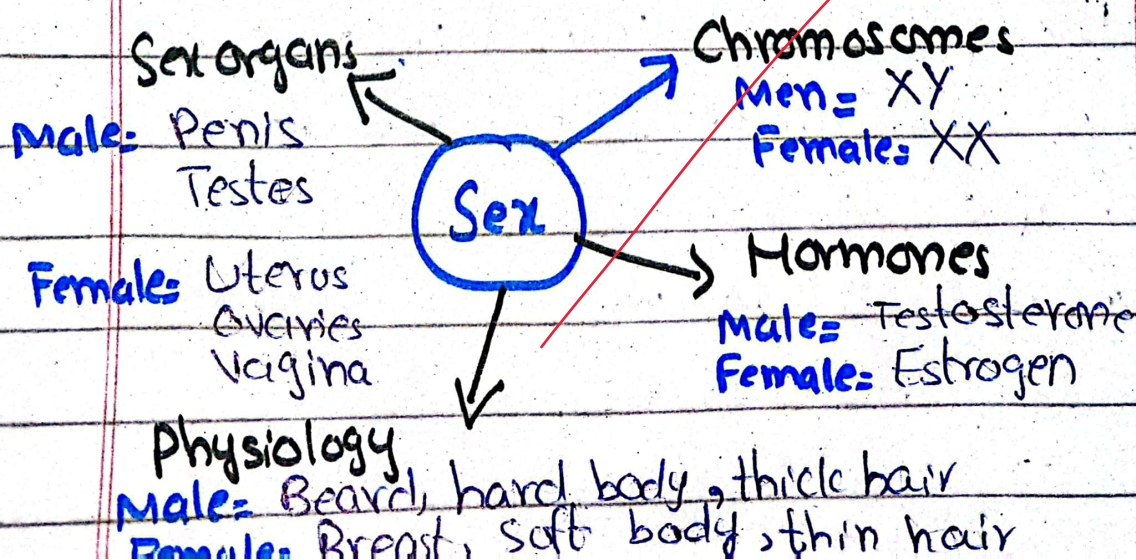 Sex organs
Male: Penis
Testes
Female: Uterus
Ovaries
Vagina
Sex
Chromosomes
Men = XY
Female: XX
Hormones
Male= Testosterone
Female= Estrogen
Physiology
Male= Beard, hard body, thick hair
Female: Breast, soft body, thin hair